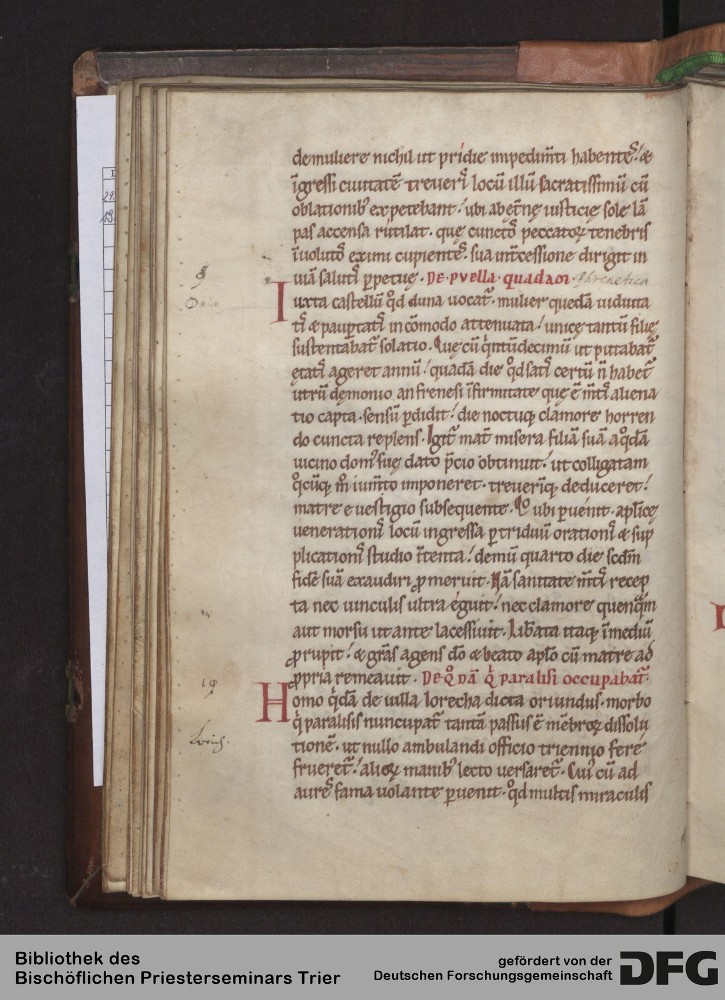 de muliere nichil ut pridie impedim̄ti habentes; &
īgressi ciuitatē treuerꝰ locū illū sacratissimū cū
oblationibꝰ expetebant; ubi abęt̄nę iusticię sole lā
pas accensa rutilat. quę cunctos peccatoꝝ tenebris
īuolutos eximi cupientes. sua int̄cessione dirigit in
uiā salutis ꝑpetuę. DE PVELLA quadam phrenetica
Iuxta castellū qd̄ duna uocat᷑. mulier quedā uiduita
tis & paup̱tatis incōmodo attenuata; unicę tantū filię
sustentabat᷑ solatio. Quę cū qͥntūdecimū ut putabat᷑
ętatis ageret annū; quadā die qd̄ satis certū n̄ habet᷑
utrū dęmonio an frenesi īfirmitate que ē m̄tis aliena
tio capta. sensū ꝑdidit; die noctuqꝫ clamore horren
do cuncta replens. Igit᷑ mat᷑ misera filiā suā a qͦdā
uicino domꝰ suę dato p̄cio obtinuit; ut colligatam
qͦcūqꝫ m̊ iumto imponeret. treuerīqꝫ deduceret;
matre e uestigio subsequente. Qͦ ubi ꝑuenit. aplicę
uenerationis locū ingressa ꝑ triduū orationis & sup
plicationis studio ītenta; demū quarto die scd̄m
fidē suā exaudiri ꝓmeruit. Nā sanitate m̄tis recep
ta nec uinculis ultra eguit; nec clamore quenqͣm
aut morsu ut ante lacessiuit. Libata itaqꝫ ī mediū
ꝓrupit; & grās agens dō & beato aplo cū matre ad
ꝓpria remeauit. DE QͦDĀ qͥ paralisi occupabat᷑.
Homo qͥdā de uilla lorecha dicta oriundus. morbo
qͥ paralisis nuncupat᷑ tantā passus ē mēbroꝝ dissolu
tionē. ut nullo ambulandi officio triennio fere
frueret᷑; alioꝝ manibꝰ lecto uersaret᷑. Cuiꝰ cū ad
aurē fama uolante ꝑuenit. qd̄ multis miraculis
Bibliothek des
Bischöflichen Priesterseminars Trier
gefördert von der
Deutschen Forschungsgemeinschaft
DFG